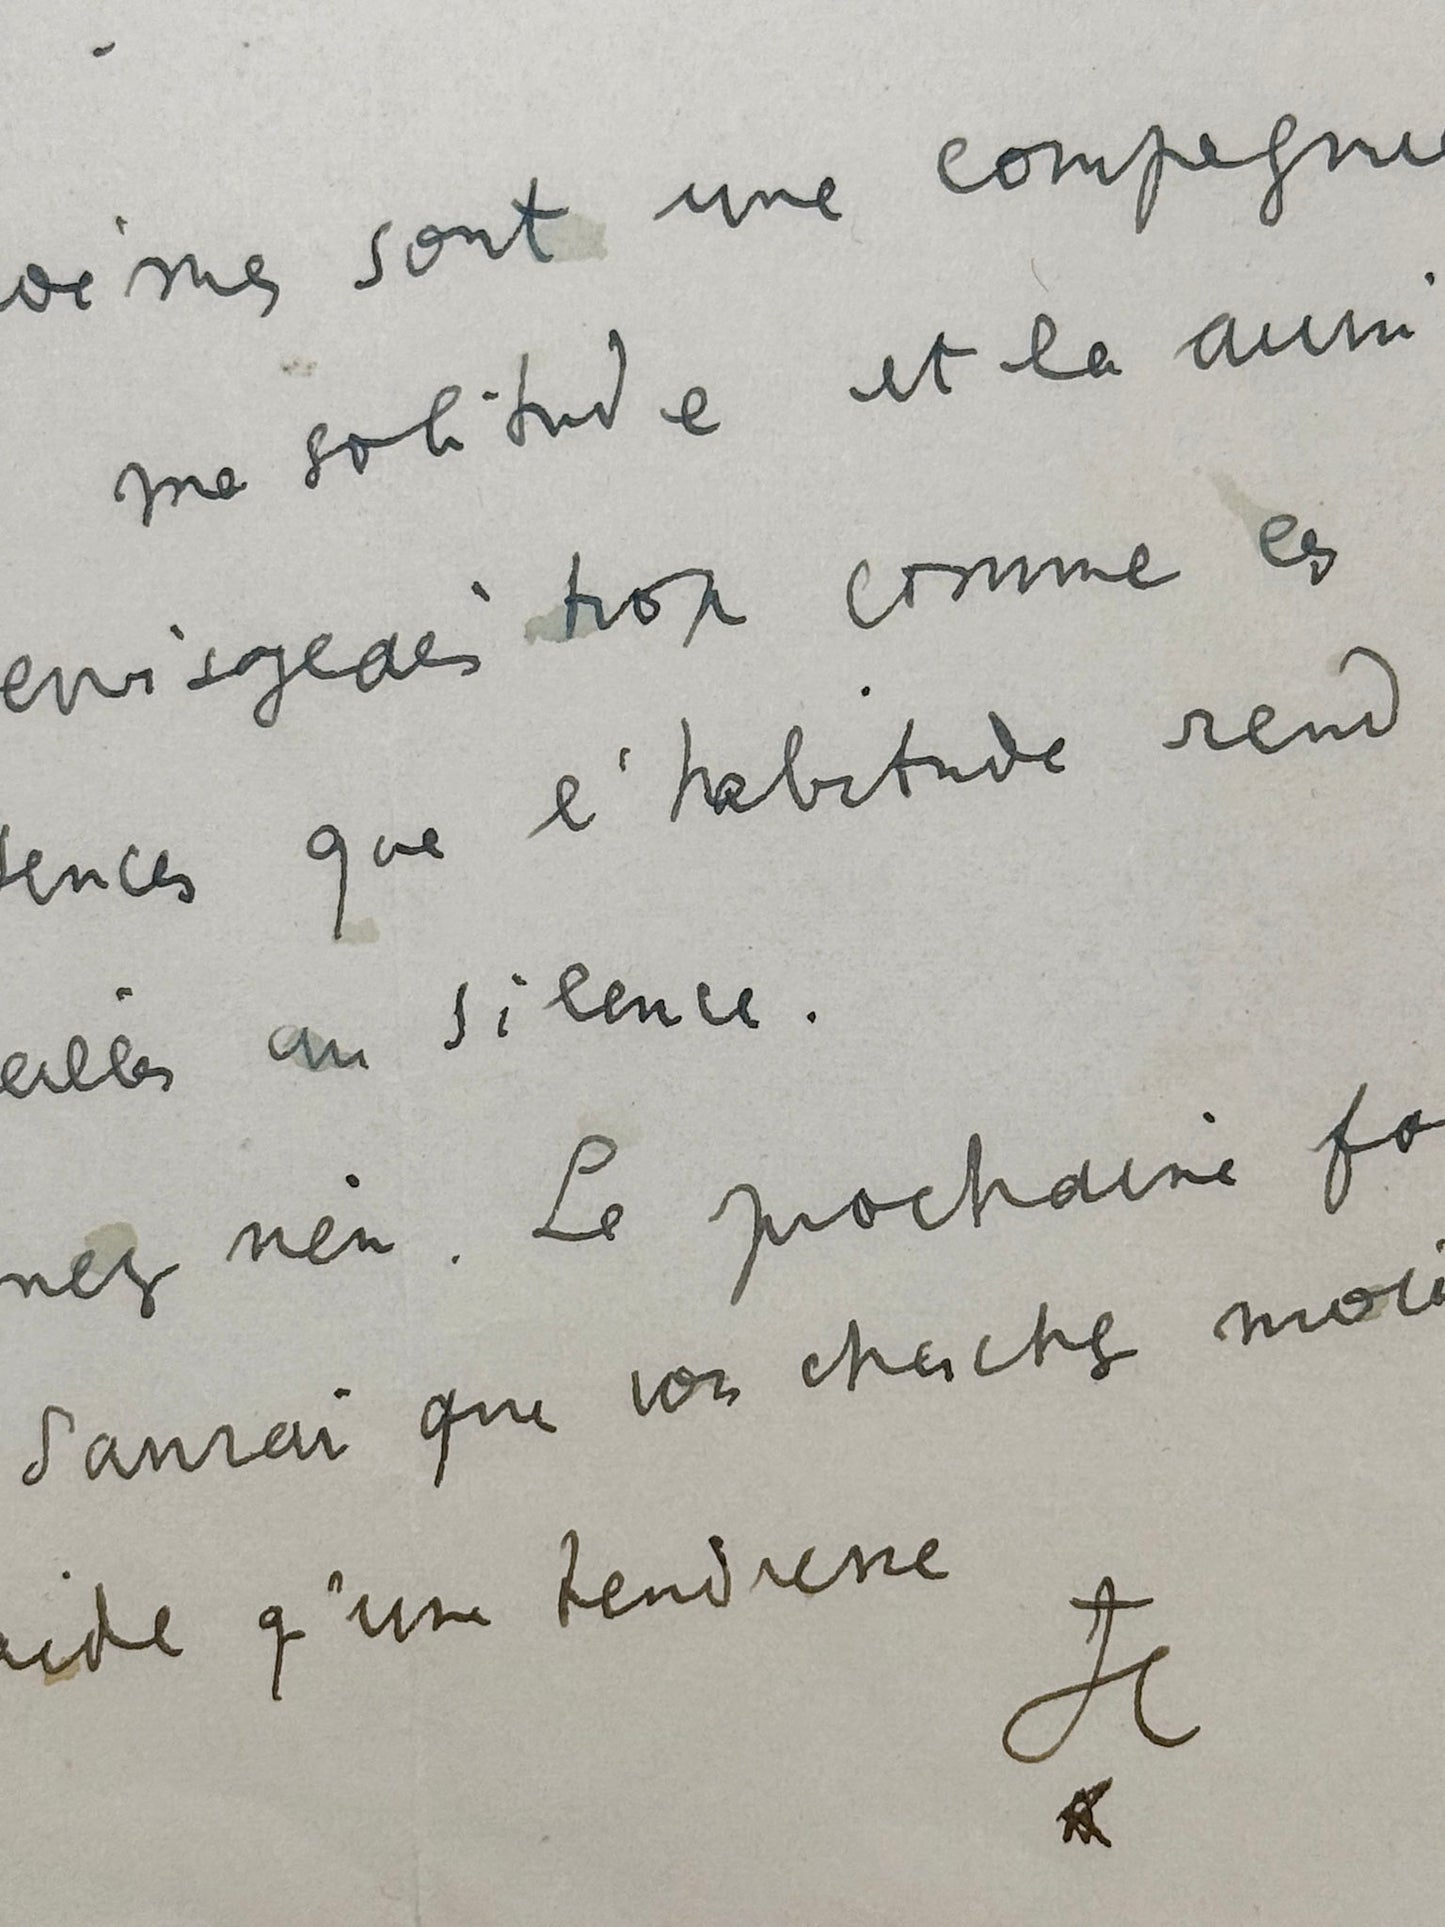 oèmes sont une compagnie
ma solitude et la aussi
envisageais trop comme ces
tences que l'habitude rend
eilles au silence.
nez rien. La prochaine fo
saurai que vous cherchez moi
aide q'une tendresse
JC